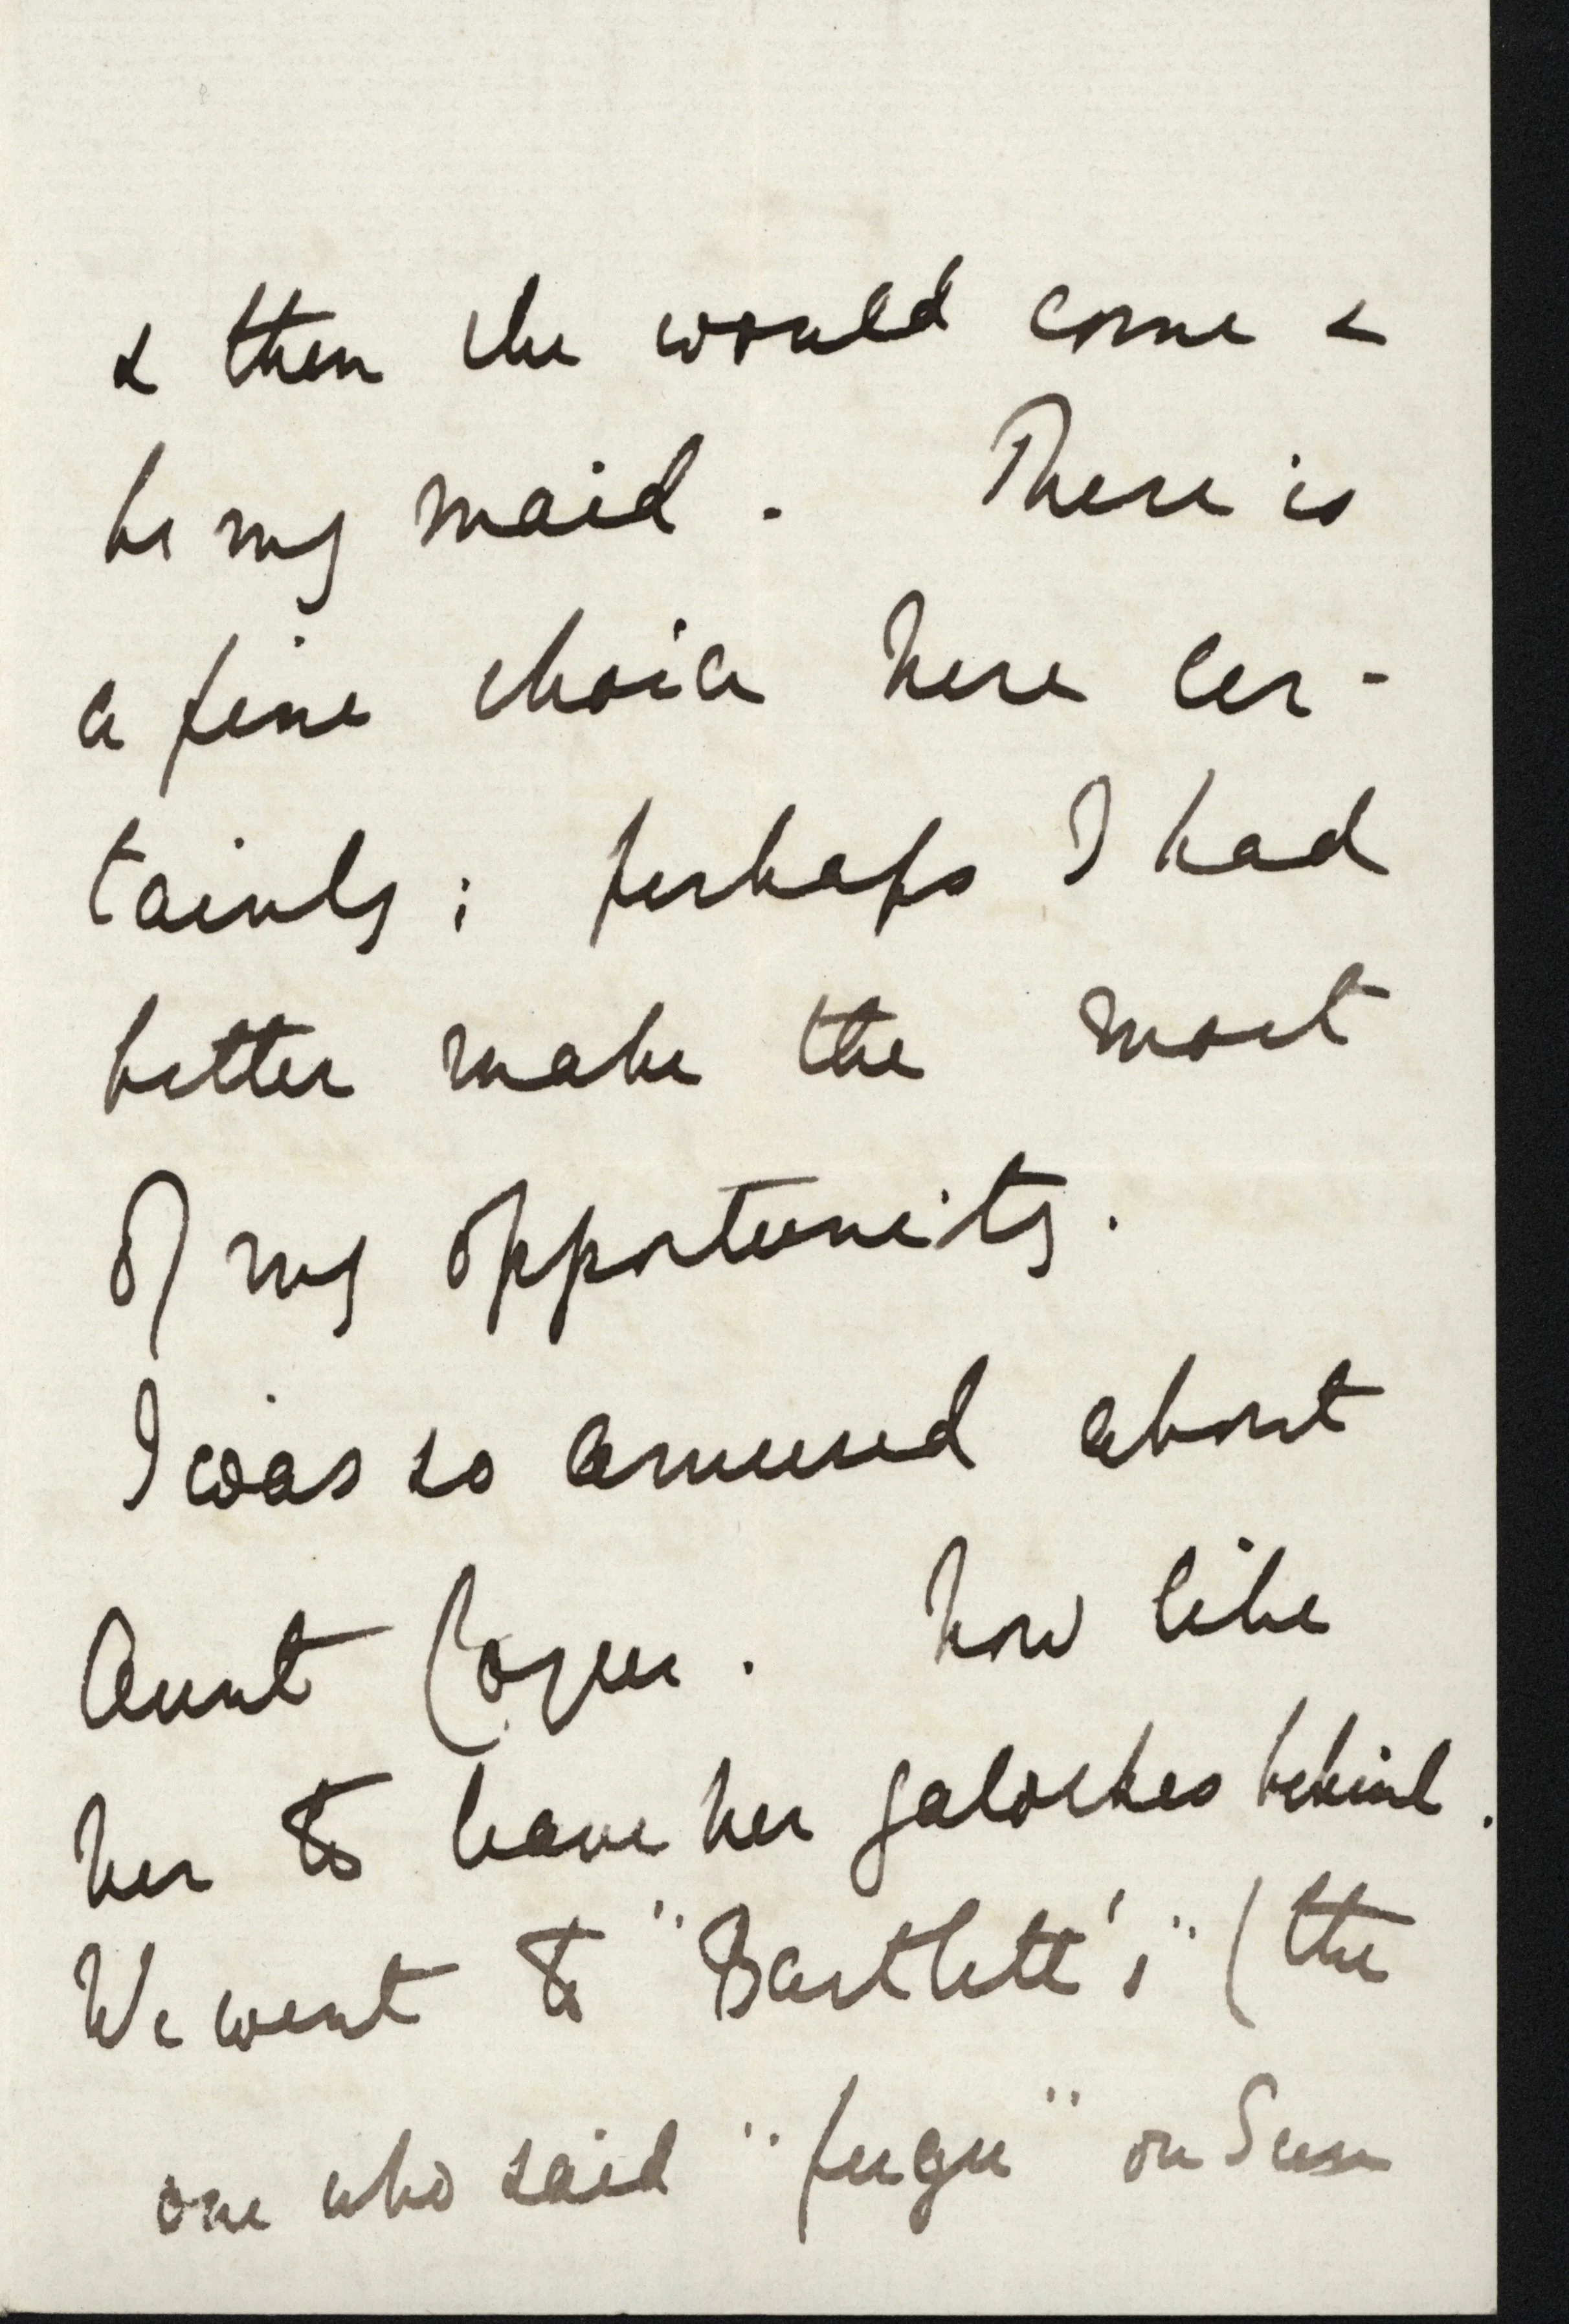 & then she would come &
be my maid. There is
a fine choice here cer-
tainly; perhaps I had
better make the most
of my opportunity.
I was so amused about
Aunt How like
her to leave her galoshes behind.
We went to "Bartlett's" (the
one who said "fugu" on Sun